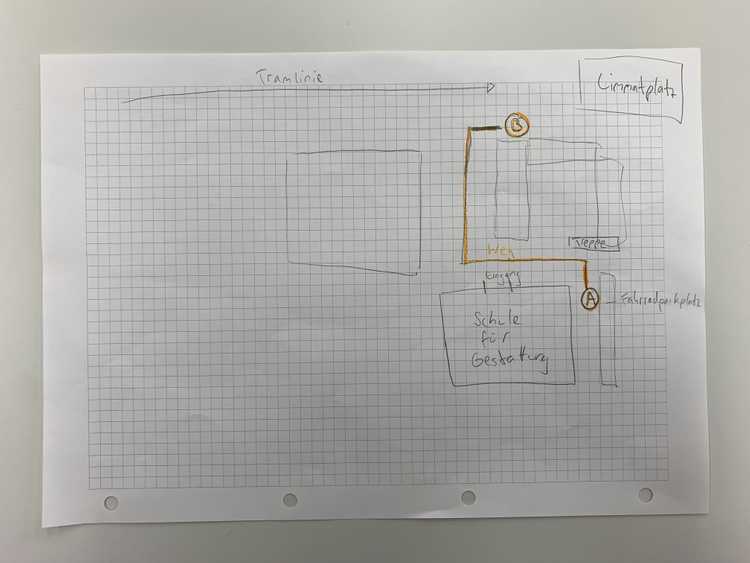 Tramlinie
Limmatplatz
B
Treppe
Weg
Eingang
A
Fahrradparkplatz
Schule
für
Gestaltung